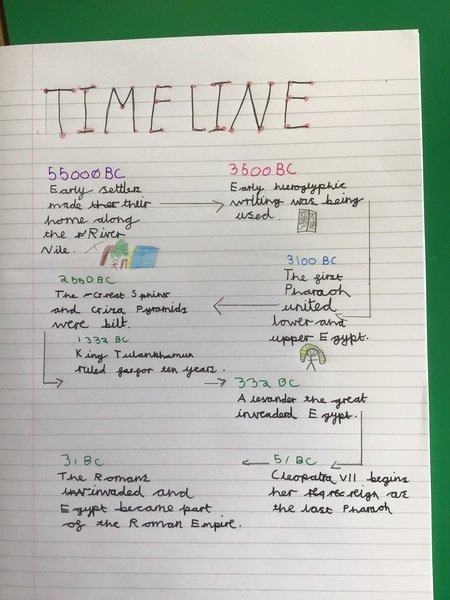 TIMELINE
55000 BC
Early settlers
made their
home along
the River
Nile.
3500 BC
Early hieroglyphic
writing was being
used.
3100 BC
The first
Pharaoh
united
lower and
upper Egypt.
2550 BC
The Great Sphinx
and Criza Pyramids
were bilt.
1332 BC
King Tutankhamun
ruled for ten years.
332 BC
Alexander the great
inveaderd Egypt.
51 BC
Cleopatra VII begins
her reign as
the last Pharaoh
31 BC
The Romans
invaded and
Egypt became part
of the Roman Empire.